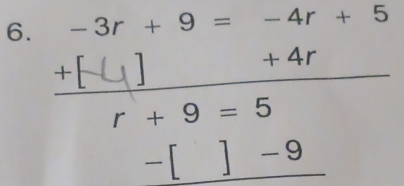 6. -3r + 9 = -4r + 5
+[-4] + 4r
r + 9 = 5
-[ ] -9